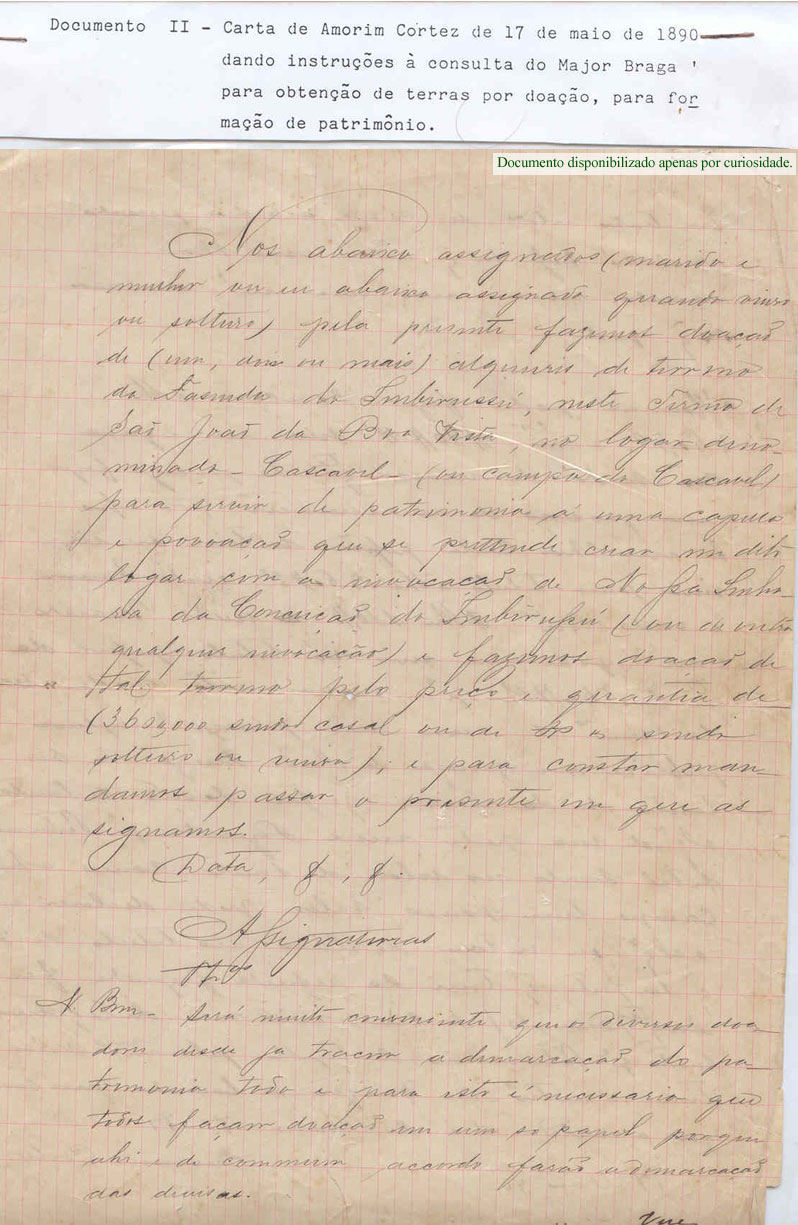 Documento II - Carta de Amorim Cortez de 17 de maio de 1890
dando instruções à consulta do Major Braga '
para obtenção de terras por doação, para for
mação de patrimônio.
Documento disponibilizado apenas por curiosidade.
Nos abaixo assignados (marido e
mulher ou eu abaixo assignado quando viuvo
ou solteiro) pela presente fazemos doação
de (um, dous ou mais) alqueires de terreno
da Fasenda do Imbirussú, neste Termo de
São João da Boa Vista, no logar deno-
minado - Cascavel - (ou campo do Cascavel)
para servir de patrimonio a uma capella
e povoação que se prettende criar no dito
logar com a invocação de Nossa Senho-
ra da Conceição do Imbirussú (ou outra
qualquer invocação) e fazemos doação de
tal terreno pelo preço e quantia de
(360,000 sendo casal ou de sendo
solteiro ou viuvo), e para constar man-
damos passar o presente em que as
signamos.
Data, &, &.
Assignaturas
N. Bem - Será muito conveniente que os diversos doa-
dores desde já tracem a demarcação do pa-
trimonio todo e para isto é necessario que
todos façam doação em um so papel porque
ahi e de commum accordo farão a demarcação
das diversas.